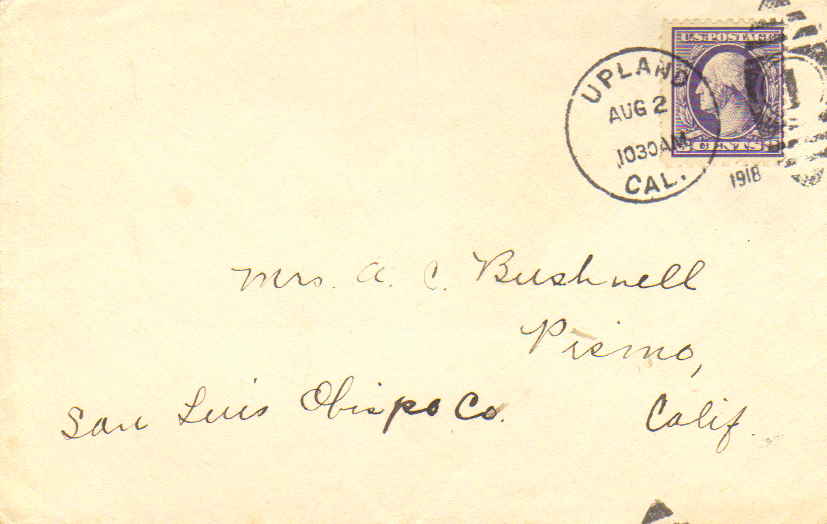 U.S. POSTAGE
UPLAND
AUG 2
1030 AM
CAL.
1918
1
3 CENTS 3
Mrs. A. C. Bushnell
Pismo,
San Luis Obispo Co.
Calif.